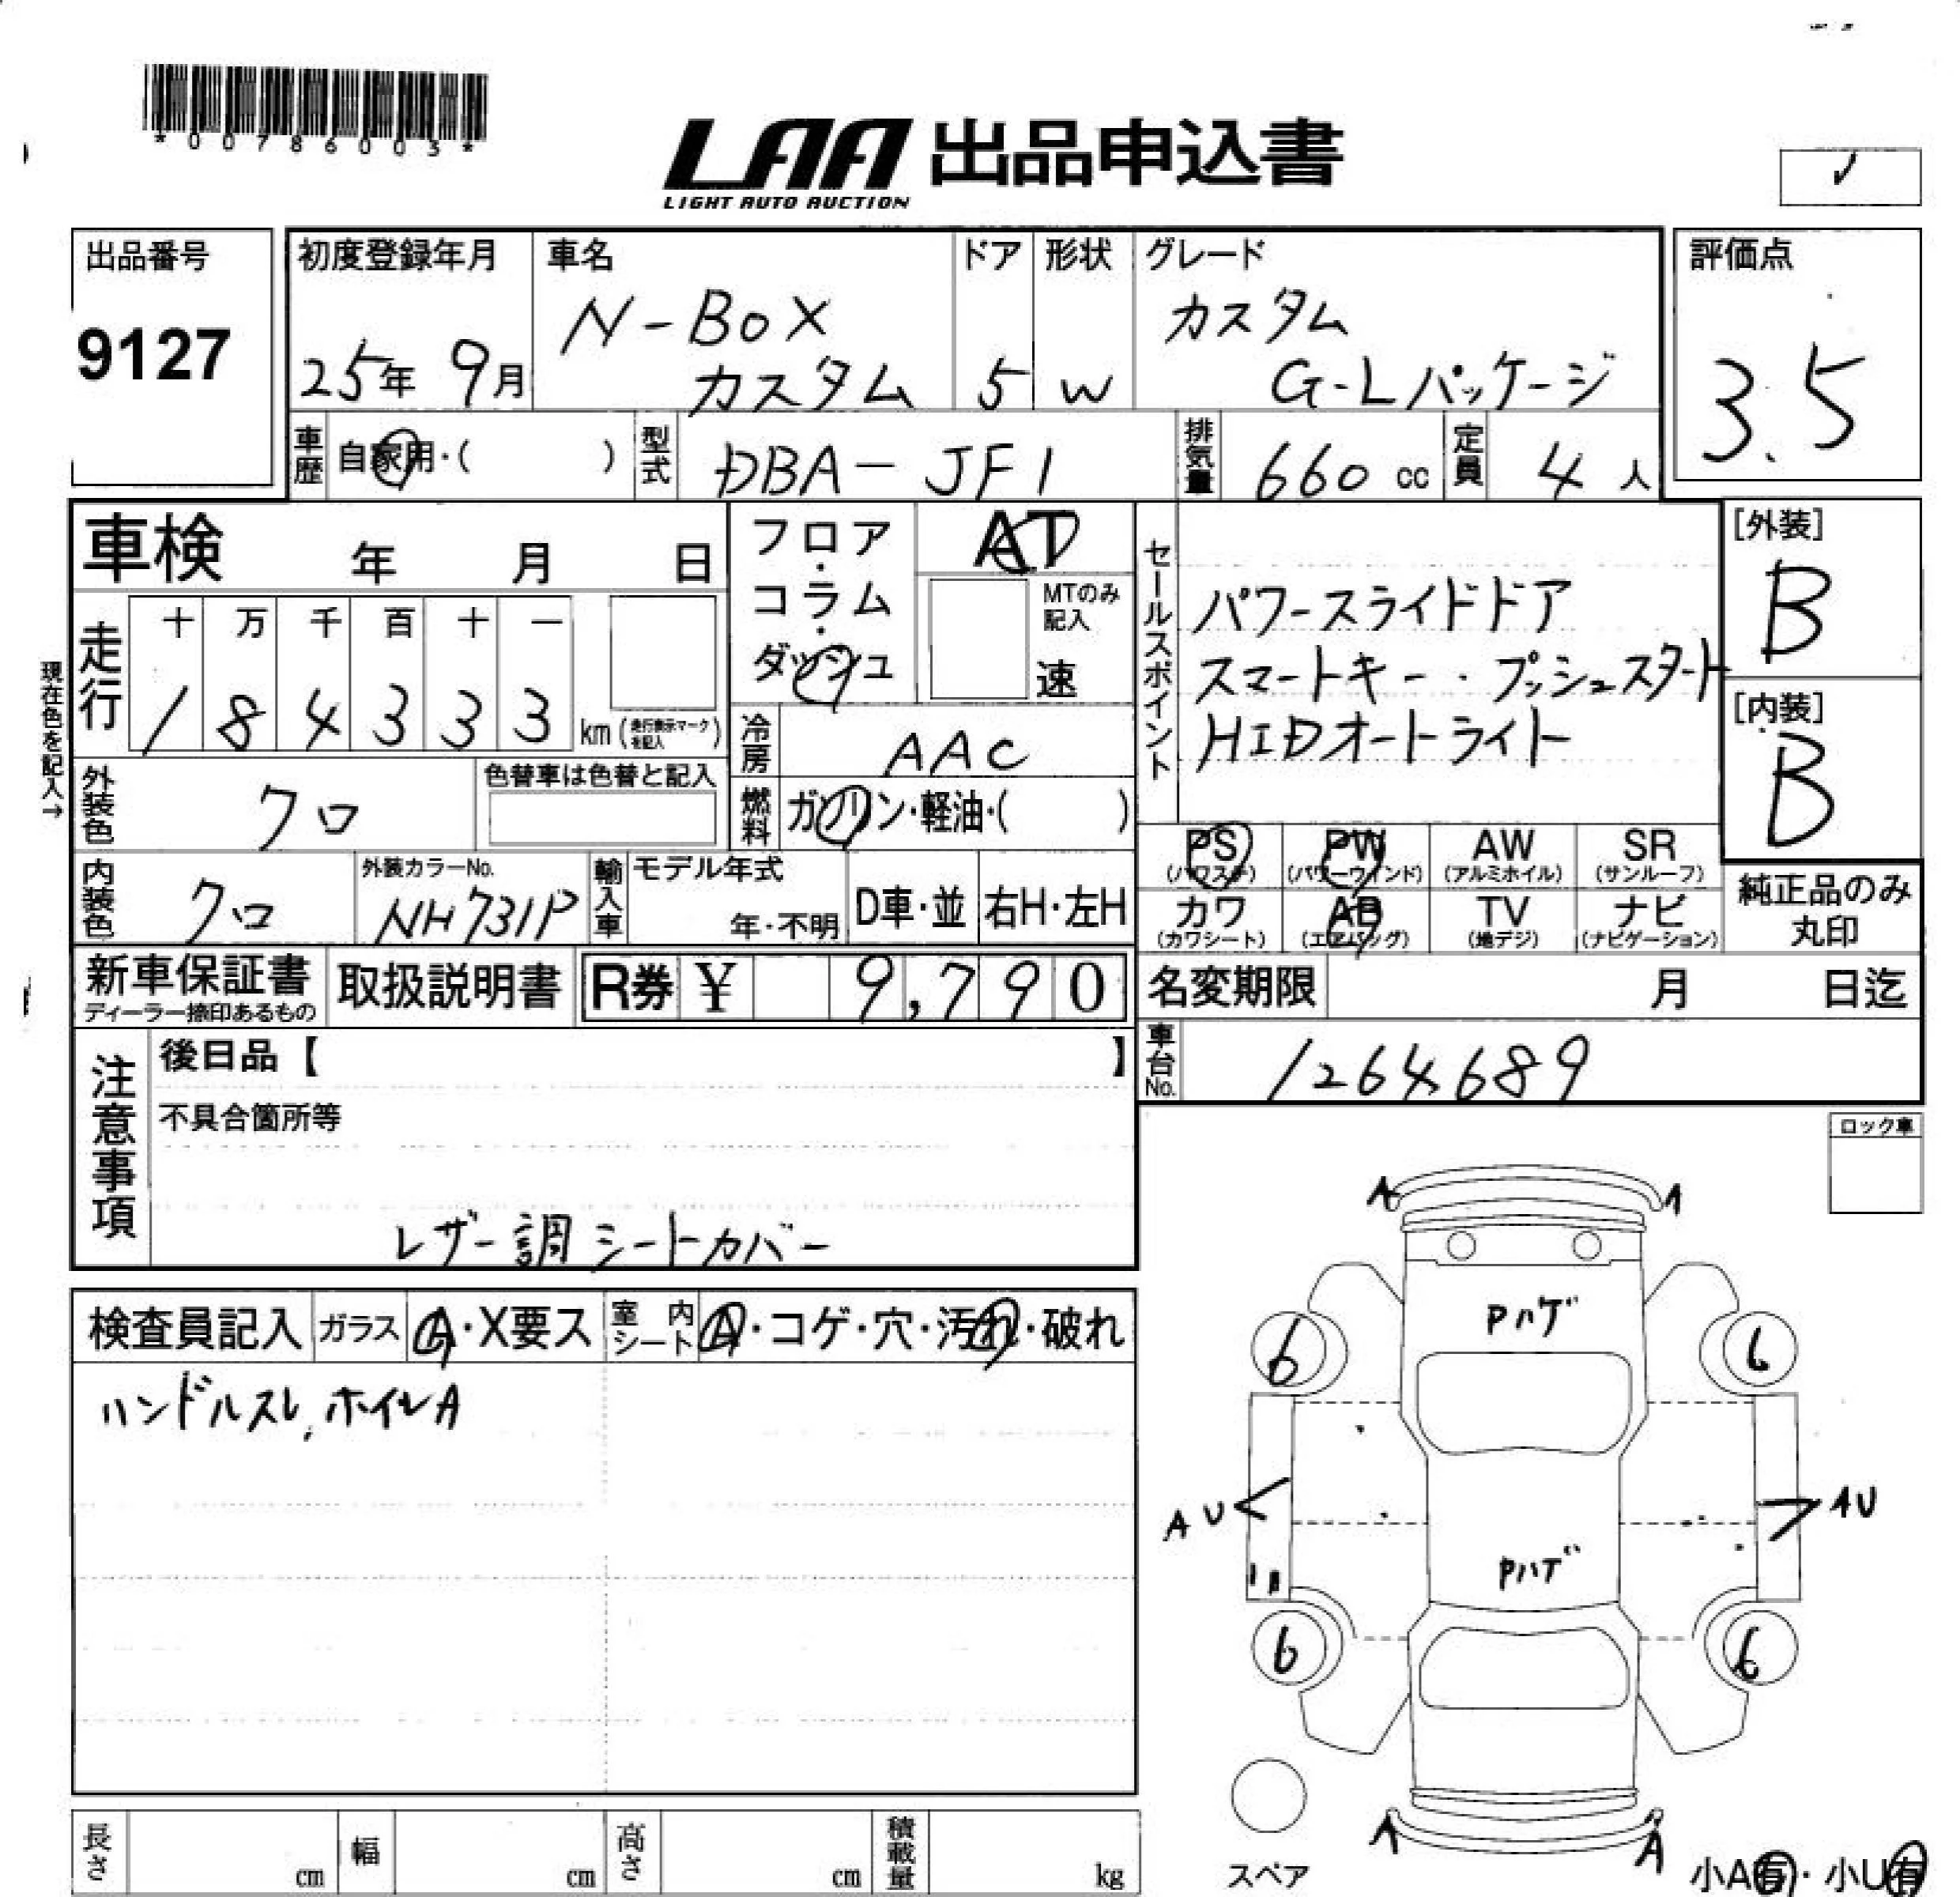 *00786003*
LAA 出品申込書
LIGHT AUTO AUCTION
出品番号
9127
初度登録年月
25年 9月
車名
N-BOX
カスタム
ドア
5
形状
W
グレード
カスタム
G-Lパッケージ
評価点
3.5
車歴 自家用・( )
型式 DBA-JF1
排気量 660 cc
定員 4 人
車検 年 月 日
フロア・コラム・ダッシュ
AT
MTのみ記入
速
走行
十 万 千 百 十 一
1 8 4 3 3 3 km (走行表示マークを記入)
現在色を記入→
冷房 AAC
外装色 クロ
色替車は色替と記入
燃料 ガソリン・軽油・( )
内装色 クロ
外装カラーNo.
NH731P
輸入車
モデル年式
年・不明
D車・並
右H・左H
セールスポイント
パワースライドドア
スマートキー・プッシュスタート
HIDオートライト
[外装]
B
[内装]
B
PS (パワステ)
PW (パワーウインド)
AW (アルミホイル)
SR (サンルーフ)
カワ (カワシート)
AB (エアバッグ)
TV (地デジ)
ナビ (ナビゲーション)
純正品のみ
丸印
新車保証書
ディーラー捺印あるもの
取扱説明書
R券 ¥ 9,790
名変期限 月 日迄
車台No. 1264689
注意事項
後日品【 】
不具合箇所等
レザー調シートカバー
ロック車
検査員記入
ガラス A・X要ス
室内シート A・コゲ・穴・汚れ・破れ
ハンドルスレ, ホイルA
A A
Pハゲ
6 6
AU AU
Pハゲ
6 6
A A
スペア
小A有・小U有
長さ cm
幅 cm
高さ cm
積載量 kg